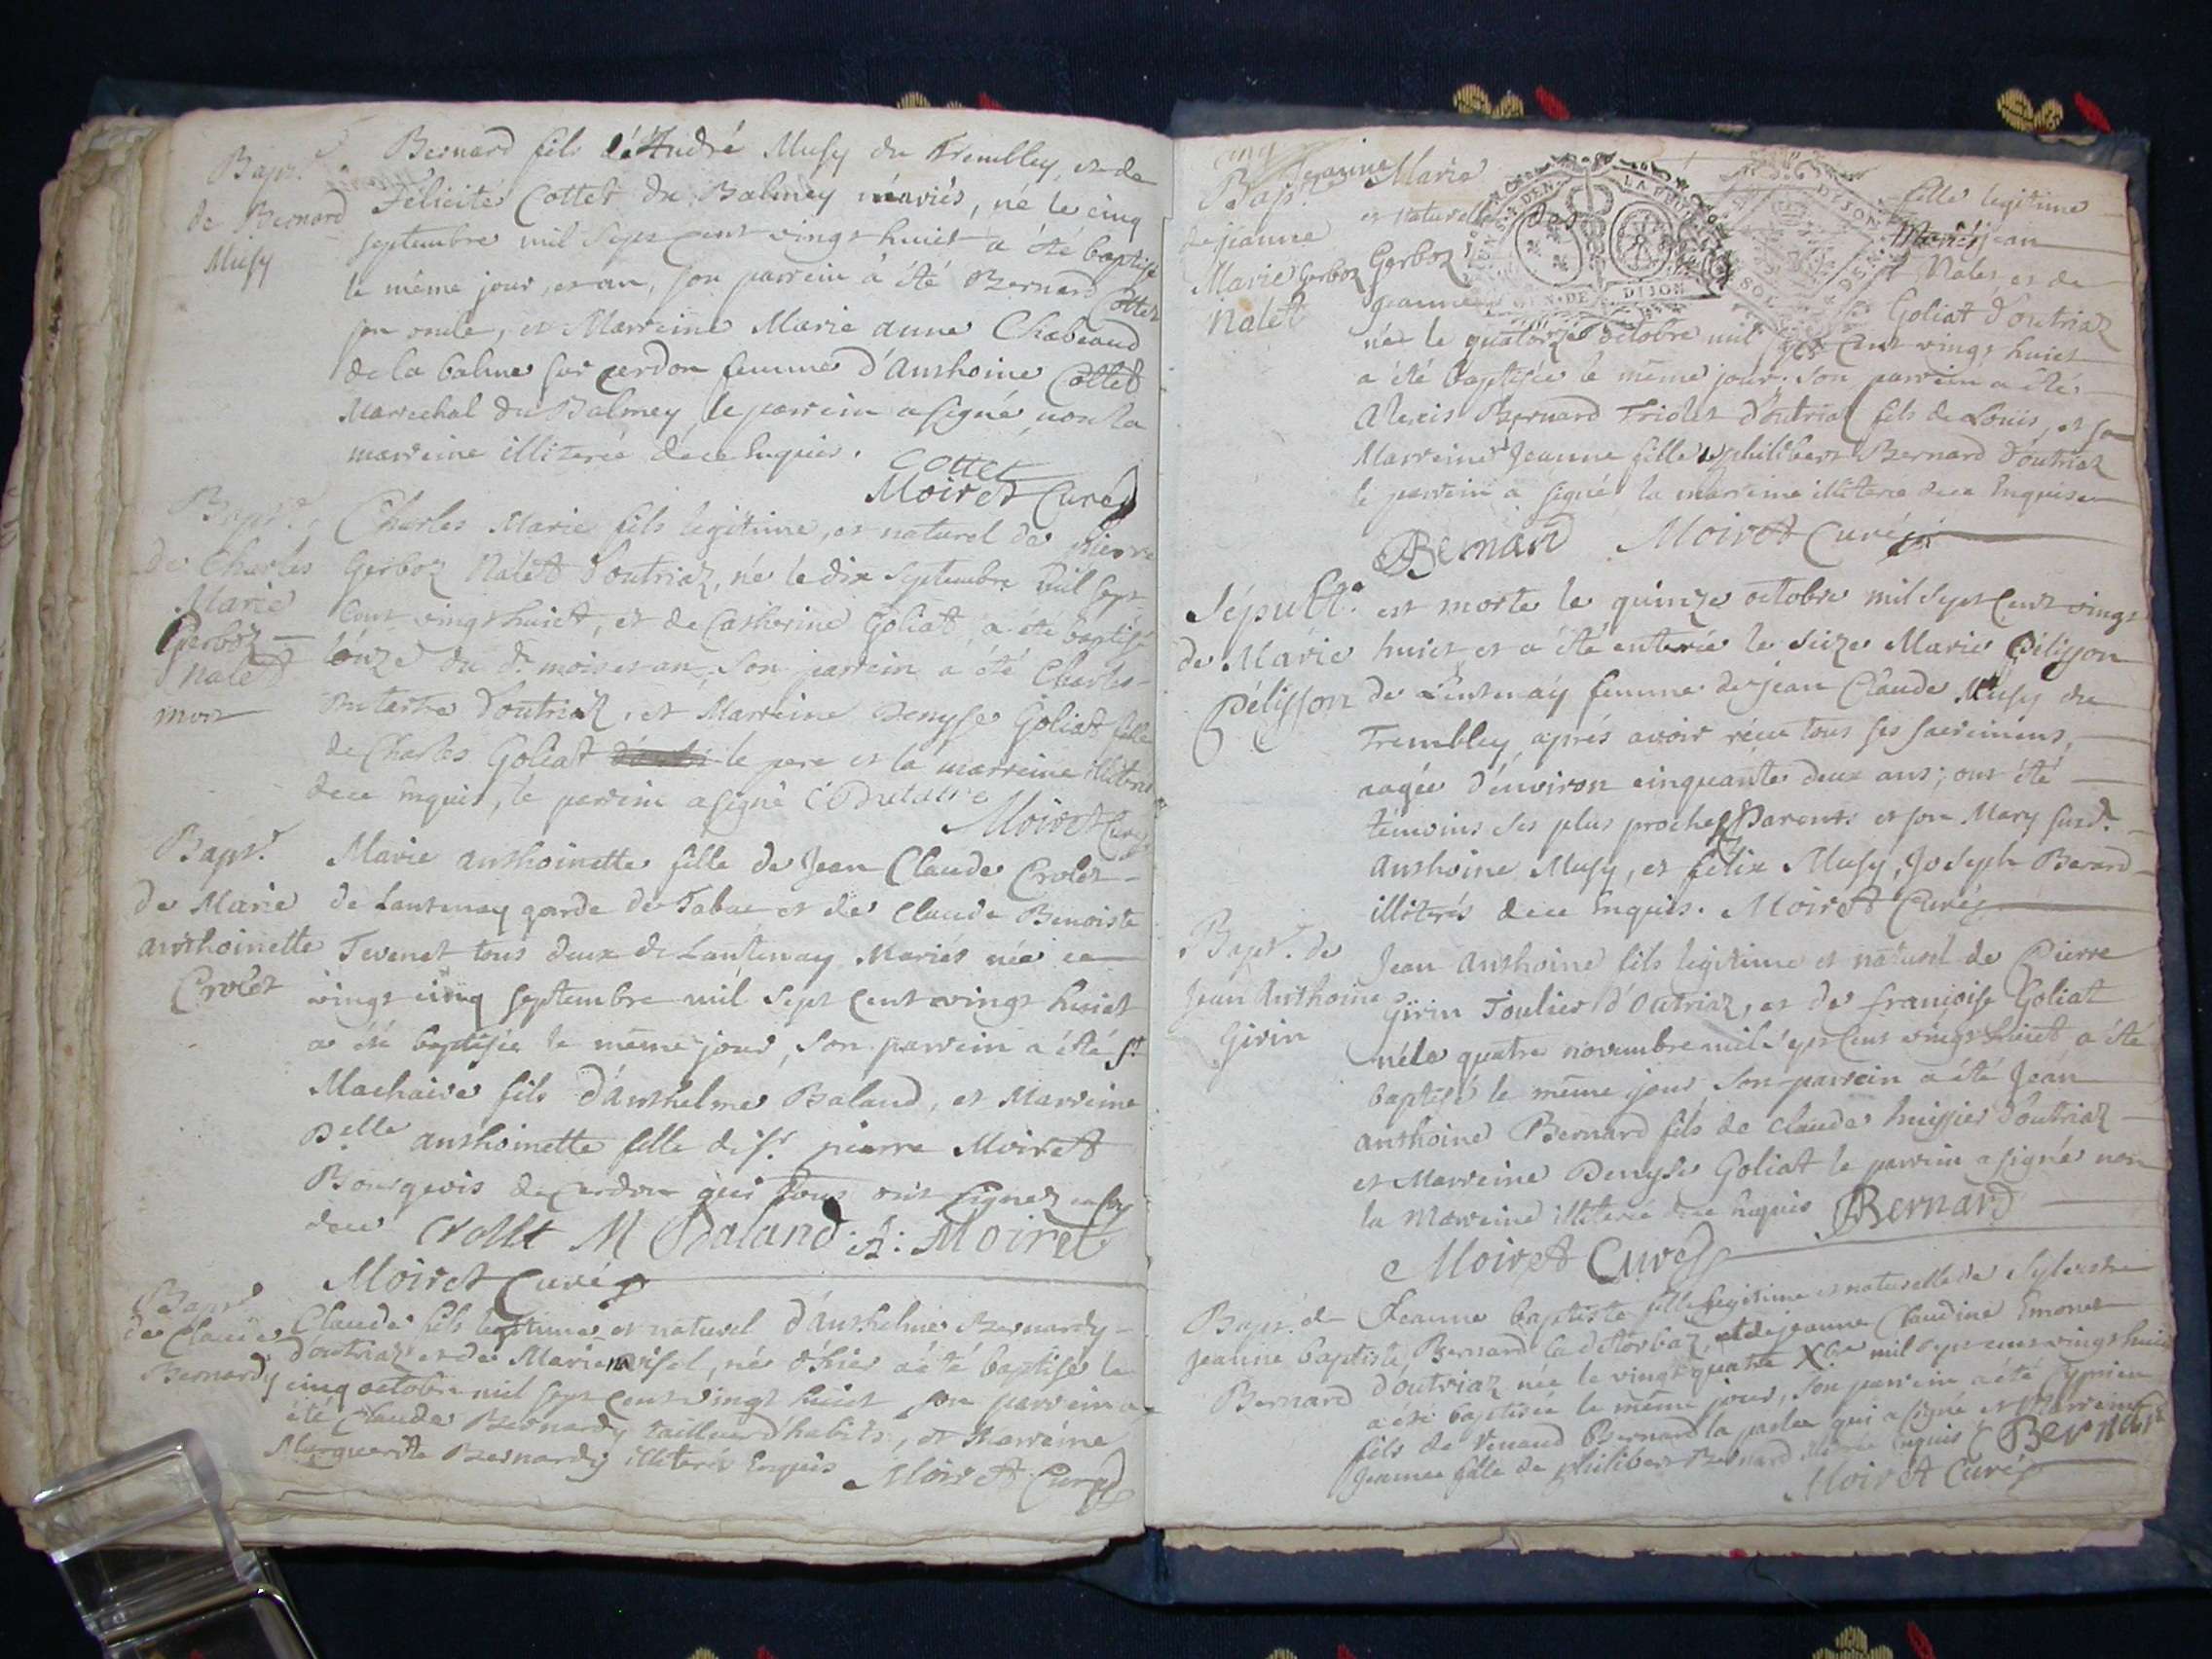 Bapt.
de Bernard
Musy
Bernard fils d'André Musy du Trembley, et de
Felicité Cottet du Balmey mariés, né le cinq
septembre mil sept cent vingt huict a été baptisé
le même jour, et an, son parrein à été Bernard Cottet
son oncle, et Marreine Marie anne Chabeaud
de la balme sur cerdon femme d'Anthoine Cottet
Marechal du Balmey, le parrein a signé, non la
marreine illiterée de ce Enquise.
Cottet
Moiret Curé
Bapt.
de Charles
Marie
Gerboz
Nalet
mort
Charles Marie fils legitime, et naturel de pierre
Gerboz Nalet d'outriaz, né le dix septembre mil sept
Cent vingt huict, et de Catherine Goliat, a été baptisé
l'onze du d. mois et an, son parrein a été Charles
Dutartre d'outriaz, et Marreine Denyse Goliat fille
de Charles Goliat le pere et la marreine illiterés
de ce Enquis, le parrein a signé C Dutartre
Moiret Curé
Bapt.
de Marie
anthoinette
Crolet
Marie anthoinette fille de Jean Claude Crolet
de Lantenay garde de Tabac et de Claude Benoiste
Tevenet tous deux de Lantenay Mariés née ce
vingt cinq septembre mil sept cent vingt huict
a été baptisée le même jour, son parrein a été Sr
Machaire fils d'Anthelme Baland, et Marreine
Delle anthoinette fille de Sr. pierre Moiret
Bourgeois de Cerdon qui tous ont signez
de ce Crollet M Baland A: Moiret
Moiret Curé
Bapt.
de Claude
Bernardy
Claude fils legitime et naturel d'Anthelme Bernardy
d'outriaz et de Marie, né d'hier a été baptisé le
cinq octobre mil sept cent vingt huict son parrein a
été Claude Bernardy tailleur d'habits, et Marreine
Marguerite Bernardy illiterés Enquis Moiret Curé
Bapt.
de jeanne
Marie Gerboz
Nalet
Jeanne Marie fille legitime
et naturelle de Mariés jean
Gerboz Nalet, et de
jeanne Goliat d'outriaz
GEN. DE DIJON
née le quatorze octobre mil sept cent vingt huict
a été baptisée le même jour. son parrein a été
Alexis Bernard Triolet d'outriaz fils de Louis, et sa
Marreine Jeanne fille de philibert Bernard d'outriaz
le parrein a signé la marreine illiterée de ce Enquise
Bernard Moiret Curé
Sépult.
de Marie
Pélisson
est morte le quinze octobre mil sept cent vingt
huict et a été enterée le seize Marie Pélisson
de Lantenay femme de jean Claude Musy du
Trembley, aprés avoir réçu tous ses sacremens,
aagée d'environ cinquante deux ans; ont été
témoins ses plus proches Parents et son Mary susd.
Anthoine Musy, et felix Musy, Joseph Berard
illiterés de ce Enquis. Moiret Curé
Bapt. de
Jean Anthoine
Girin
Jean Anthoine fils legitime et naturel de Pierre
Girin Toulier d'Outriaz, et de françoise Goliat
né le quatre novembre mil sept cent vingt huict a été
baptisé le même jour son parrein a été Jean
anthoine Bernard fils de claude huissier d'outriaz
et Marreine Denyse Goliat le parrein a signé non
la Marreine illiterée de ce Enquis Bernard
Moiret Curé
Bapt. de
Jeanne baptiste
Bernard
Jeanne baptiste fille legitime et naturelle de Sylvestre
Bernard et de jeanne Claudine Emonet
d'outriaz née le vingt quatre Xbre mil sept cent vingt huict
a été baptisée le même jour, son parrein a été Cyprien
fils de Venaud Bernard qui a signé et Marreine
Jeanne fille de philibert Bernard Enquis C Bernard
Moiret Curé